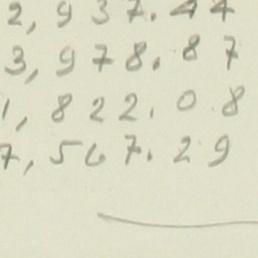 2,937.44
3,978.87
1,822.08
7,567.29